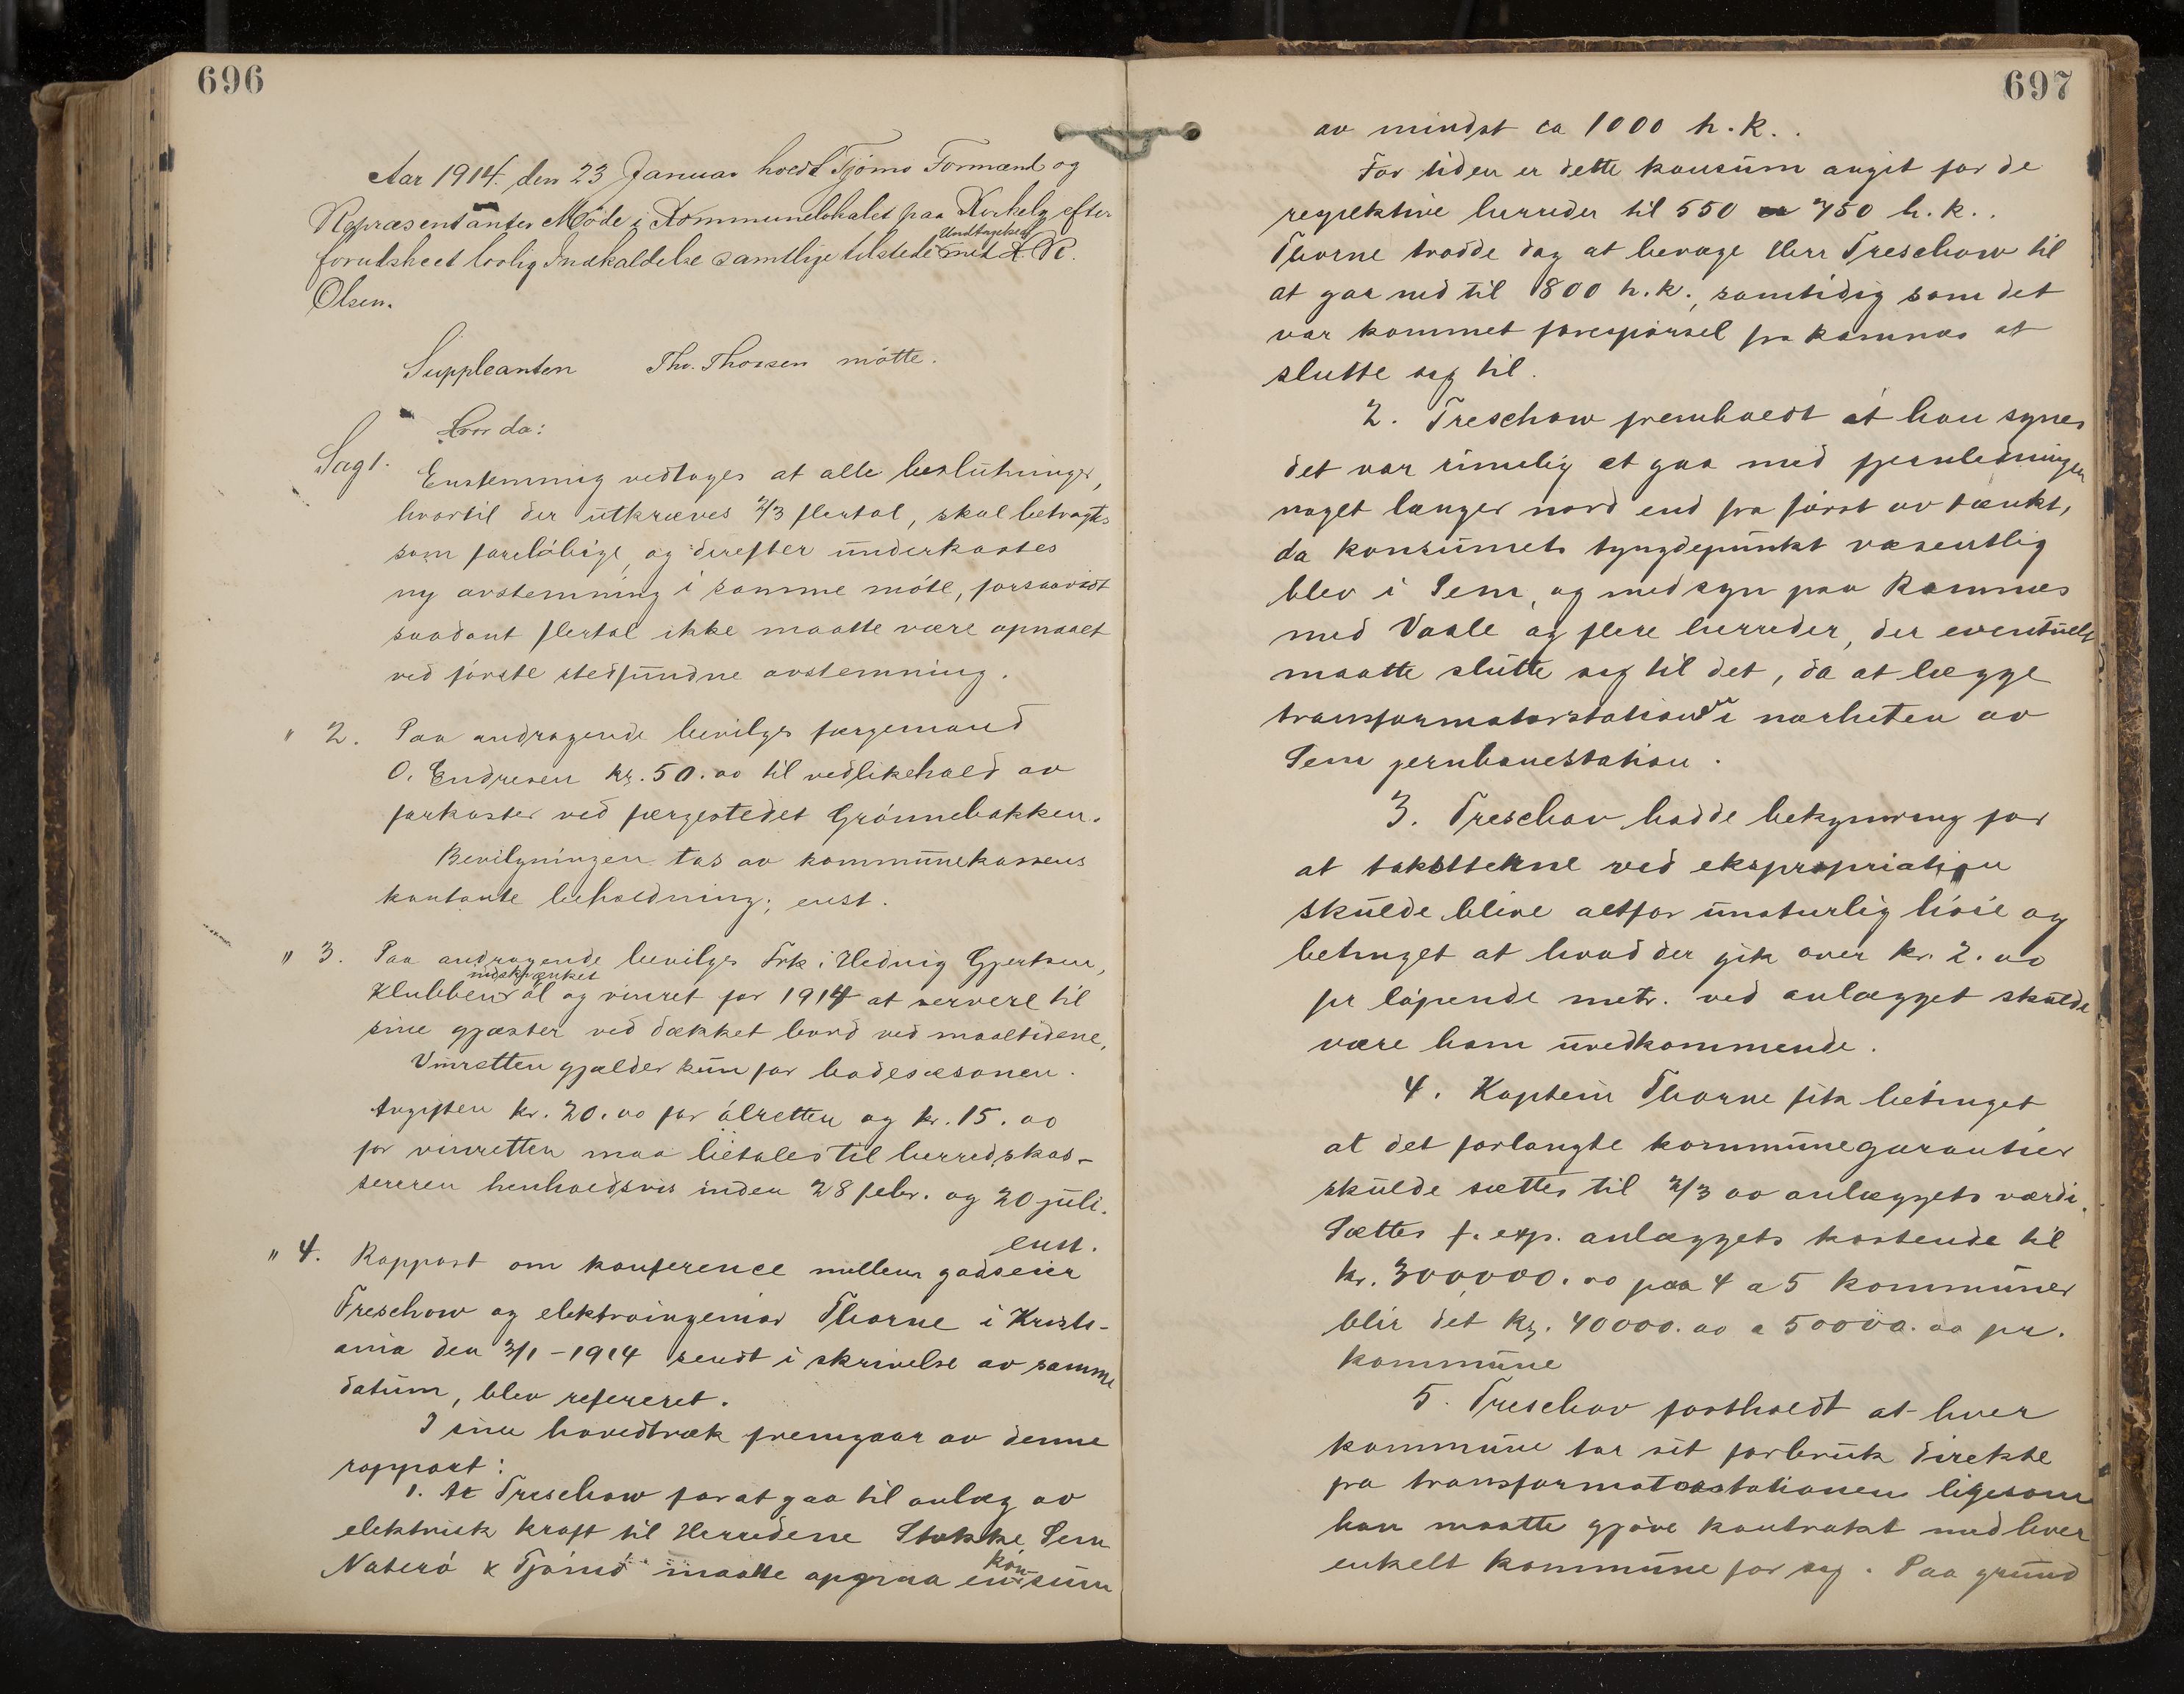 696
Aar 1914. den 23 Januar holdt Tjømø Formænd og
Repræsentanter Møde i Kommunelokalet paa Kirkely efter
forutskeet lovlig Indkaldelse samtlige tilstede med Undtagelse
Olsen.
Suppleanten Th. Thorsen møtte.
Hvor da:
Sag 1. Enstemmig vedtages at alle beslutninger,
hvortil der utkræves 2/3 flertal, skal betragtes
som foreløbige, og derefter underkastes
ny avstemning i samme møte, forsaavidt
saadant flertal ikke maatte være opnaaet
ved første stedfundne avstemning.
" 2. Paa andragende bevilges færgemand
O. Endresen kr. 50.00 til vedlikehold av
farkoster ved færgestedet Grønnebakken.
Bevilgningen tas av kommunekassens
kontante beholdning; enst.
" 3. Paa andragende bevilges Frk. Hedvig Gjertsen,
Klubben indskrænket øl og vinret for 1914 at servere til
sine gjæster ved dækket bord ved maaltidene,
Vinretten gjælder kun for badesæsonen.
Avgiften kr. 20.00 for ølretten og kr. 15.00
for vinretten maa betales til herredskas-
sereren henholdsvis inden 28 febr. og 20 juli.
enst.
" 4. Rapport om konference mellem godseier
Treschow og elektroingeniør Thorne i Kristi-
ania den 3/1-1914 sendt i skrivelse av samme
datum, blev refereret.
I sine hovedtræk fremgaar av denne
rapport:
1. At Treschow for at gaa til anlæg av
elektrisk kraft til Herredene Stokke, Sem
Nøterø & Tjømø maatte opgaa en konsum
697
av mindst ca 1000 h.k..
For tiden er dette konsum angit for de
respektive herreder til 550 a 750 h.k..
Thorne trodde dog at bevæge Herr Treschow til
at gaa ned til 800 h.k., samtidig som det
var kommet forespørsel fra Ramnes at
slutte seg til.
2. Treschow fremholdt at han synes
det var rimelig at gaa med fjernledningen
noget længer nord end fra først av tænkt,
da konsumets tyngdepunkt væsentlig
blev i Sem, og med syn paa Ramnes
med Vaale og flere herreder, der eventuelt
maatte slutte seg til det, da at lægge
transformatorstationen i nærheten av
Sem jernbanestation.
3. Treschov hadde bekymring for
at takstterne ved ekspropriation
skulde blive altfor unaturlig høie og
betinget at hvad der gik over kr. 2.00
pr løpende metr. ved anlægget skulde
være ham uvedkommende.
4. Kaptein Thorne fik betinget
at det forlangte kommunegarantier
skulde sættes til 2/3 av anlæggets værdi.
Sættes f. exp. anlæggets kostende til
kr. 300,000.00 paa 4 a 5 kommuner
blir det kr. 40000.00 a 50000.00 pr.
kommune
5. Treschov fastholdt at hver
kommune tar sit forbruk direkte
fra transformatorstationen ligesom
han maatte gjøre kontrakt med hver
enkelt kommune for seg. Paa grund